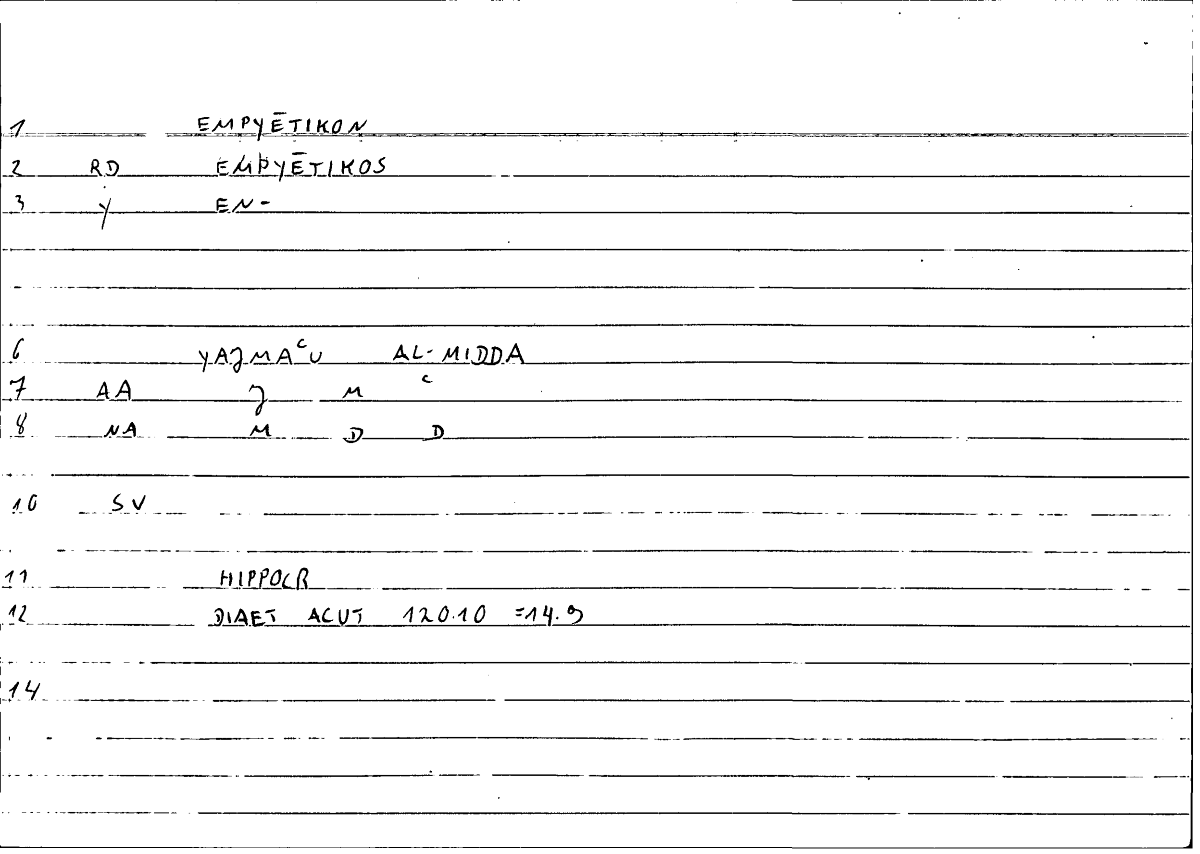 1 EMPYĒTIKON
2 RD EMPYĒTIKOS
3 Y EN-
6 YAJMAᶜU AL-MIDDA
7 AA J M ᶜ
8 NA M D D
10 SV
11 HIPPOCR
12 DIAET ACUT 120.10 =14.9
14